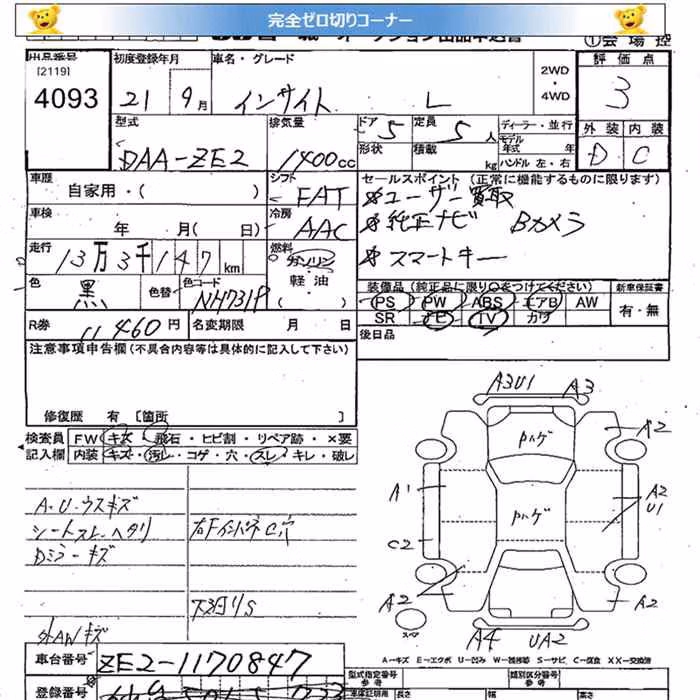 完全ゼロ切りコーナー
①会場控
出品番号 初度登録年月 車名・グレード 2WD・4WD 評価点
[2119]
4093 21 9月 インサイト L 3
型式 排気量 ドア 5 定員 5人 ディーラー・並行 外装 内装
DAA-ZE2 1400cc 形状 積載 kg モデル年式 年 ハンドル 左・右 D C
車歴 自家用・( ) シフト FAT セールスポイント (正常に機能するものに限ります)
ユーザー買取
車検 年 月( 日) 冷房 AAC 純正ナビ Bカメラ
走行 13万3千147km 燃料 ガソリン・軽油・( ) スマートキー
色 黒 色替 色コード NH731P 装備品 (純正品に限り○をつけてください) 新車保証書
PS PW ABS エアB AW 有・無
R券 11460円 名変期限 月 日 SR ナビ TV カワ
注意事項申告欄 (不具合内容等は具体的に記入して下さい) 後日品
修復歴 有 [箇所 ]
検査員記入欄 FW キズ・飛石・ヒビ割・リペア跡・×要
内装 キズ・汚レ・コゲ・穴・スレ・キレ・破レ
A3U1 A3
Pハゲ A2
A1 Pハゲ A2
U1
C2
A2 A2
スペア A4 UA2
A・U・ウスキズ
シートスレ・ヘタリ
Dミラーキズ
下廻りS
外AWキズ
A-キズ E-エクボ U-凹み W-補修跡 S-サビ、C-腐食 XX-交換済
車台番号 ZE2-1170847 型式指定番号 類別区分番号
登録番号 長さ 幅 高さ